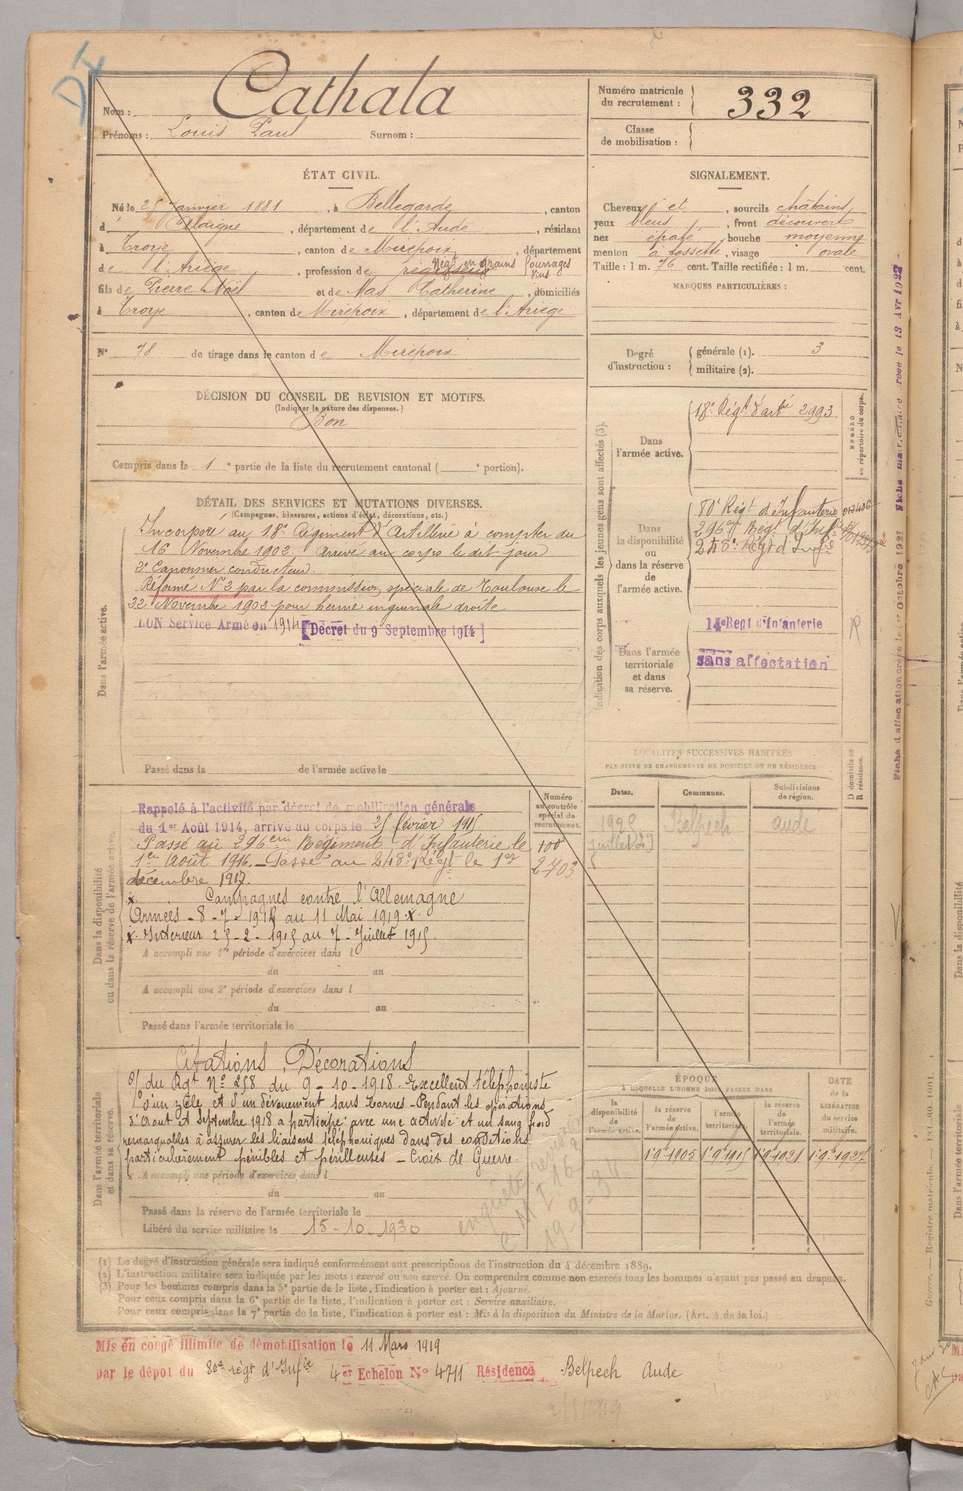 DI
Nom : Cathala
Prénoms : Louis Paul Surnom :
Numéro matricule du recrutement : 332
Classe de mobilisation :
ÉTAT CIVIL.
Né le 25 Janvier 1881, à Bellegarde, canton
d'Alaigne, département de l'Aude, résidant
à Troye, canton de Mirepoix, département
Négt en grains fourrages
de l'Ariège, profession de régisseur
fils de Pierre Noël et de Mas Catherine, domiciliés
à Troye, canton de Mirepoix, département de l'Ariège
N° 78 de tirage dans le canton de Mirepoix
SIGNALEMENT.
Cheveux et, sourcils châtains,
yeux bleus, front découvert
nez épaté, bouche moyenne
menton à fossette, visage ovale
Taille : 1 m. 76 cent. Taille rectifiée : 1 m. cent.
MARQUES PARTICULIÈRES :
Degré d'instruction : générale (1). 3
militaire (2).
DÉCISION DU CONSEIL DE REVISION ET MOTIFS.
(Indiquer la nature des dispenses.)
Bon
Compris dans la 1e partie de la liste du recrutement cantonal ( e portion).
DÉTAIL DES SERVICES ET MUTATIONS DIVERSES.
(Campagnes, blessures, actions d'éclat, décorations, etc.)
Dans l'armée active.
Incorporé au 18e Régiment d'Artillerie à compter du
16 Novembre 1902 Arrivé au corps le dit jour
2e Canonnier conducteur.
Réformé N° 2 par la commission spéciale de Toulouse le
22 Novembre 1902 pour hernie inguinale droite
BON Service Armé en 1914 [Décret du 9 Septembre 1914]
Passé dans la de l'armée active le
Indication des corps auxquels les jeunes gens sont affectés (3).
NUMÉRO au répertoire du corps.
Dans l'armée active.
18e Régt d'artie 2993
Dans la disponibilité ou dans la réserve de l'armée active.
80e Régt d'Infanterie
296e Regt d'Inf
248e Régt d'Infie
Dans l'armée territoriale et dans sa réserve.
14e Regt d'Infanterie
R
sans affectation
LOCALITÉS SUCCESSIVES HABITÉES
PAR SUITE DE CHANGEMENTS DE DOMICILE OU DE RÉSIDENCE
Dates. Communes. Subdivisions de région. D domicile ou R résidence.
1928 Belpech Aude
Dans la disponibilité ou dans la réserve de l'armée active.
Numéro au contrôle spécial du recrutement.
Rappelé à l'activité par décret de mobilisation générale
du 1er Août 1914, arrivé au corps le 25 février 1915
Passé au 296eme Regiment d'Infanterie le 100
1er Août 1916. Passé au 248e Régt le 1er 2703
décembre 1917.
x. Campagnes contre l'Allemagne
Armées - 8-7-1915 au 11 Mai 1919 x.
x Intérieur 25-2-1915 au 7 Juillet 1915
A accompli une 1e période d'exercices dans l
du au
A accompli une 2e période d'exercices dans l
du au
Passé dans l'armée territoriale le
Dans l'armée territoriale et dans sa réserve.
Citations, Décorations
O/ du Rgt N° 258 du 9-10-1918. Excellent téléphoniste
d'un zèle et d'un dévouement sans bornes - Pendant les opérations
d'Aout et Septembre 1918 a participé avec une activité et un sang froid
remarquables à assurer les liaisons téléphoniques dans des conditions
particulièrement pénibles et périlleuses - Croix de Guerre
A accompli une période d'exercices dans l
du au
Passé dans la réserve de l'armée territoriale le
Libéré du service militaire le 15-10-1930
ÉPOQUE
À LAQUELLE L'HOMME DOIT PASSER DANS
DATE de la LIBÉRATION du service militaire.
la disponibilité de l'armée active. la réserve de l'armée active. l'armée territoriale. la réserve de l'armée territoriale.
1.9e 1905 1.9e 1915 1.9e 1921 1.9e 1927
(1) Le degré d'instruction générale sera indiqué conformément aux prescriptions de l'instruction du 4 décembre 1889.
(2) L'instruction militaire sera indiquée par les mots : exercé ou non exercé. On comprendra comme non exercés tous les hommes n'ayant pas passé au drapeau.
(3) Pour les hommes compris dans la 5e partie de la liste, l'indication à porter est : Ajourné.
Pour ceux compris dans la 6e partie de la liste, l'indication à porter est : Service auxiliaire.
Pour ceux compris dans la 7e partie de la liste, l'indication à porter est : Mis à la disposition du Ministre de la Marine. (Art. 4 de la loi.)
Mis en congé illimité de démobilisation le 11 Mars 1919
par le dépot du 80e régt d'Infie 4er Echelon N° 4711 Résidence Belpech Aude